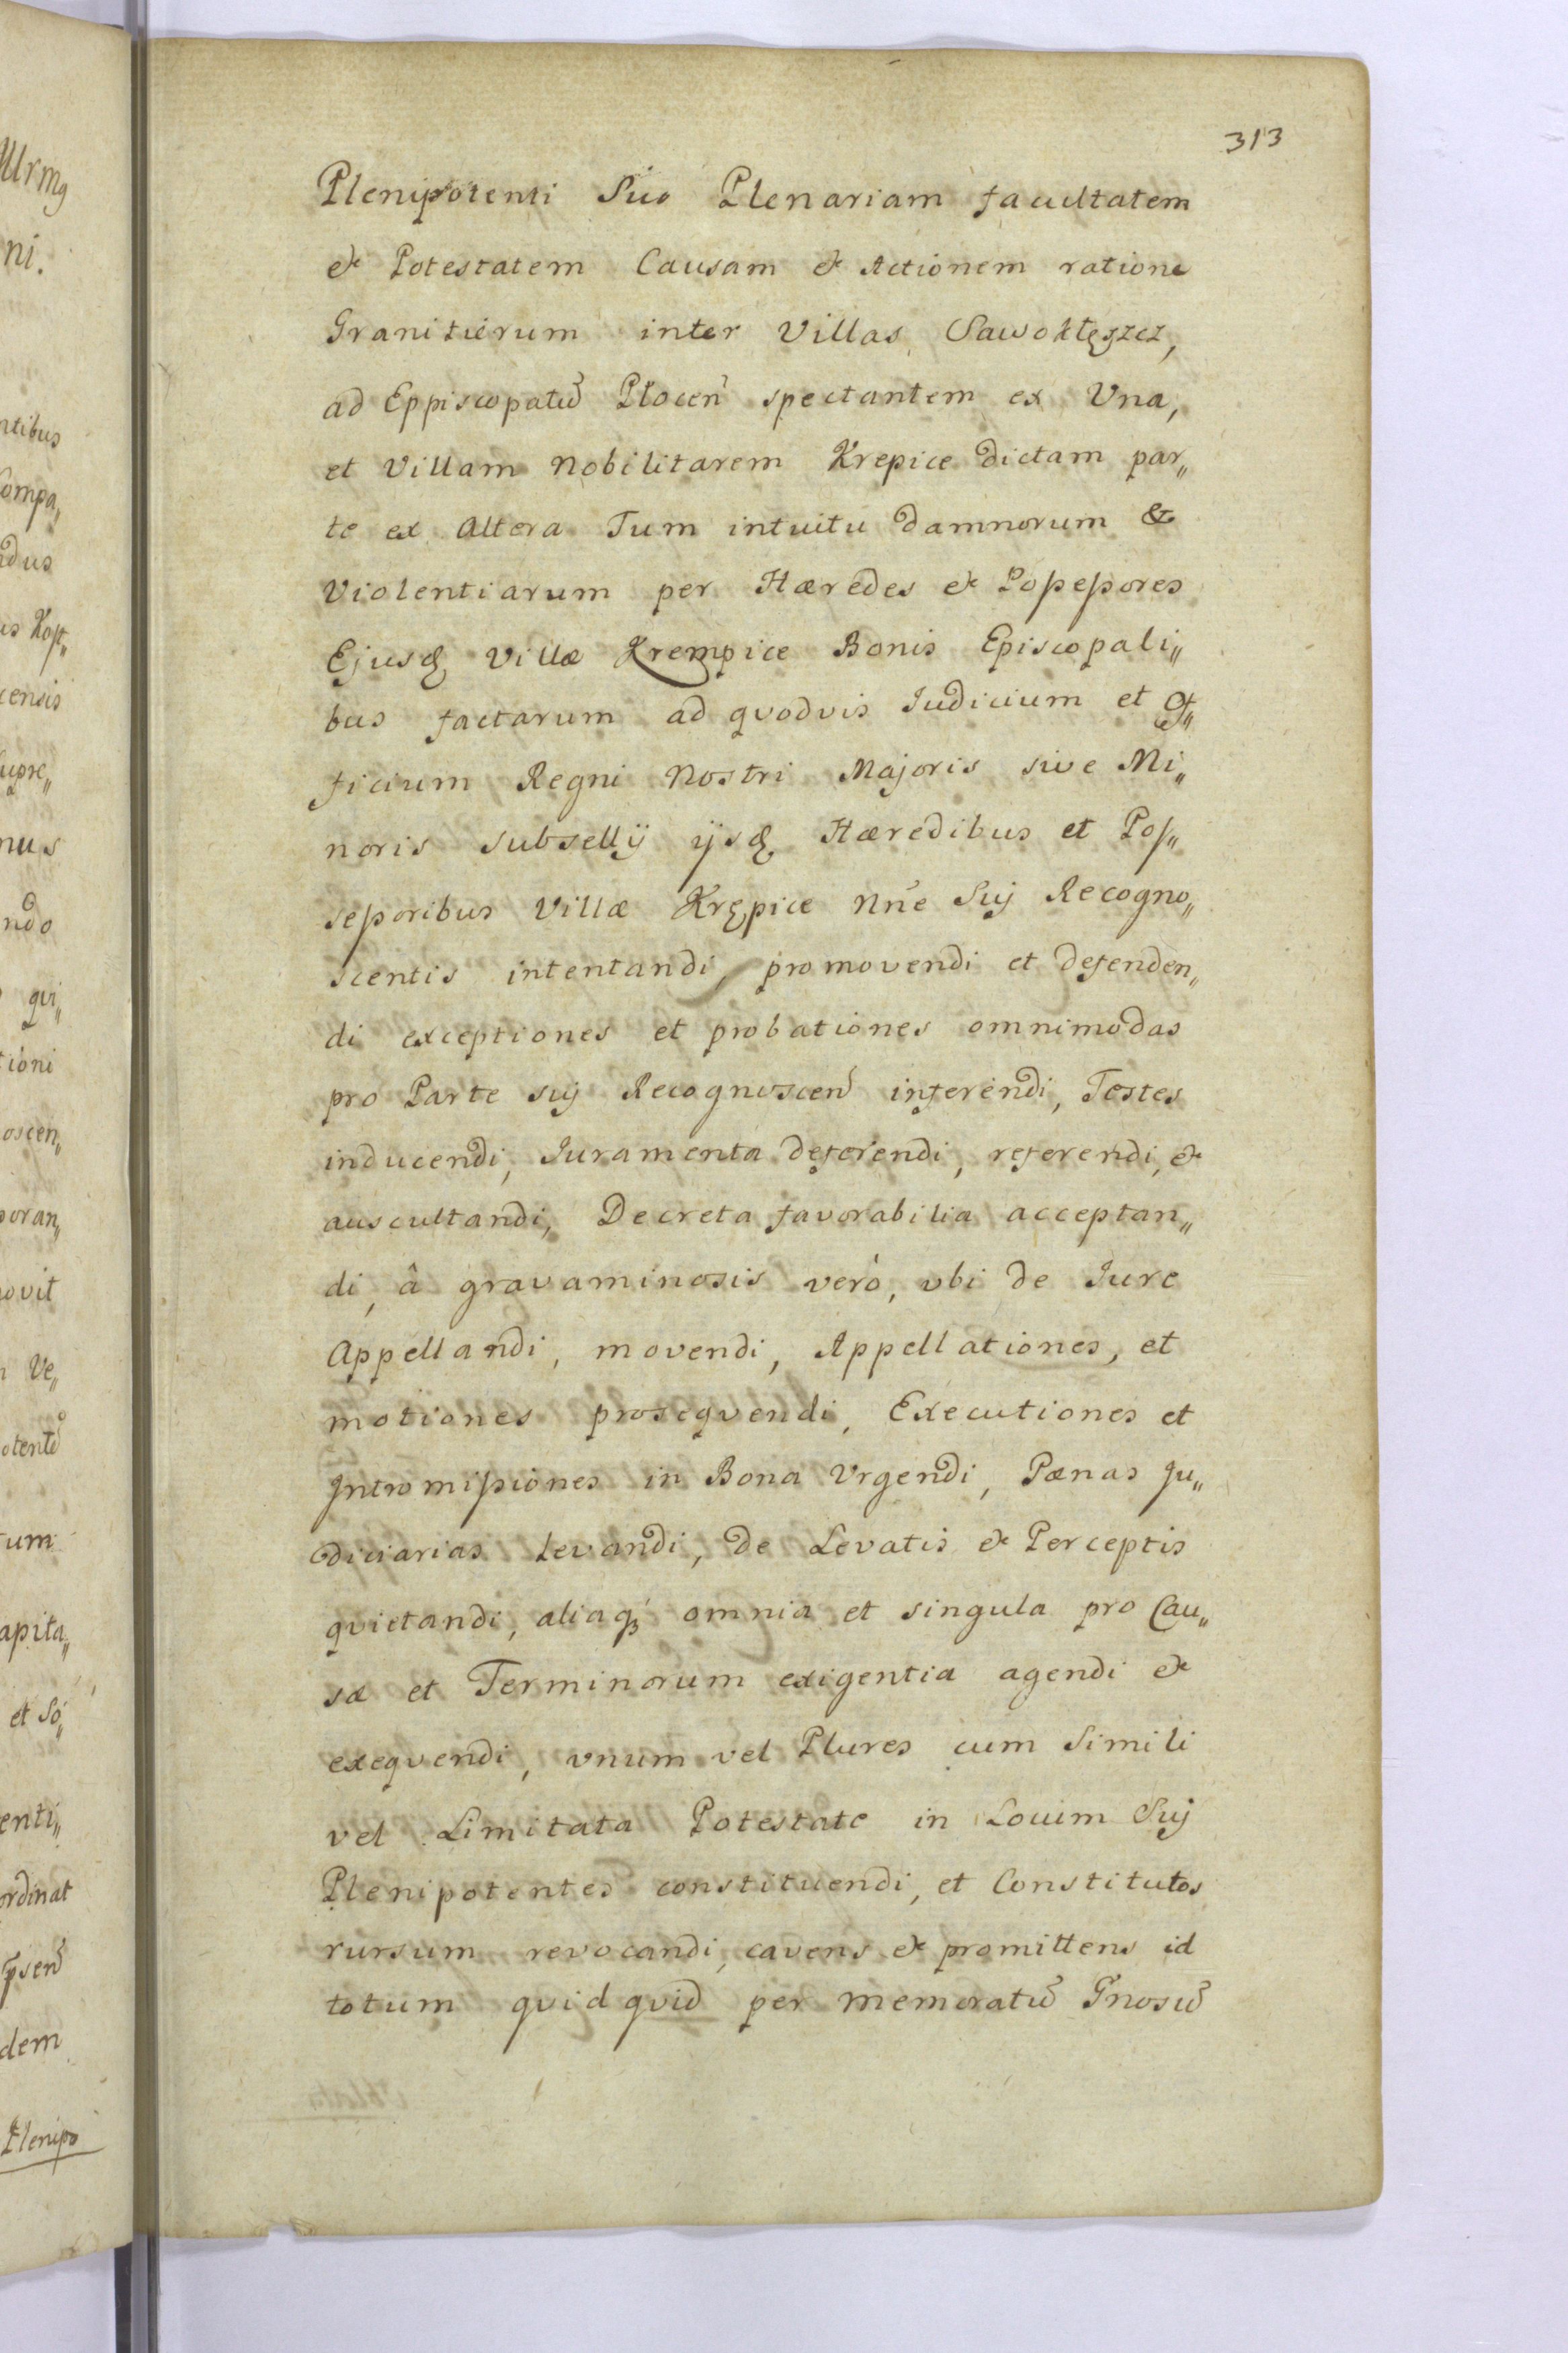 313
Plenipotenti Suo Plenariam facultatem
& Potestatem Causam & Actionem ratione
Granitierum inter Villas Sawokłęszcz,
ad Eppiscopatũ Płocen̄ spectantem ex Vna,
et Villam Nobilitarem Krepice dictam par„
te ex Altera Tum intuitu damnorum &
Violentiarum per Hæredes & Poßeßores
Ejusq, Villæ Krempice Bonis Episcopali„
bus factarum ad qvodvis Iudicium et Of„
ficium Regni Nostri Majoris sive Mi„
noris Subsellÿ ÿsq, Hæredibus et Pos„
seßoribus Villæ Krępice Nn̄e Suj Recogno„
scentis intentandi, promovendi et defenden„
di exceptiones et probationes omnimodas
pro Parte suj Recognoscen̄ inferendi, Testes
inducendi, Iuramenta deferendi, referendi, &
auscultandi, Decreta favorabilia acceptan„
di, â gravaminosis verò, vbi de Iure
Appellandi, movendi, Appellationes, et
motiones proseqvendi, Executiones et
Intromißiones in Bona Vrgendi, Pænas Ju„
diciarias Levandi, de Levatis & Perceptis
qvietandi, aliaq́, omnia et singula pro Cau„
sæ et Terminorum exigentia agendi &
exeqvendi, vnum vel Plures cum Simili
vel Limitata Potestate in Locum Suj
Plenipotentes constituendi, et Constitutos
rursum revocandi, cavens & promittens id
totum qvidqvid per memoratũ Gn̄osũ
ni.
ntibus
compa„
ndus
censis
supre„
nus
ndo
qvi„
tioni
oscen„
poran„
ovit
Ve„
tum
apita„
et Só„
enti„
ordinat
dem
Plenipo